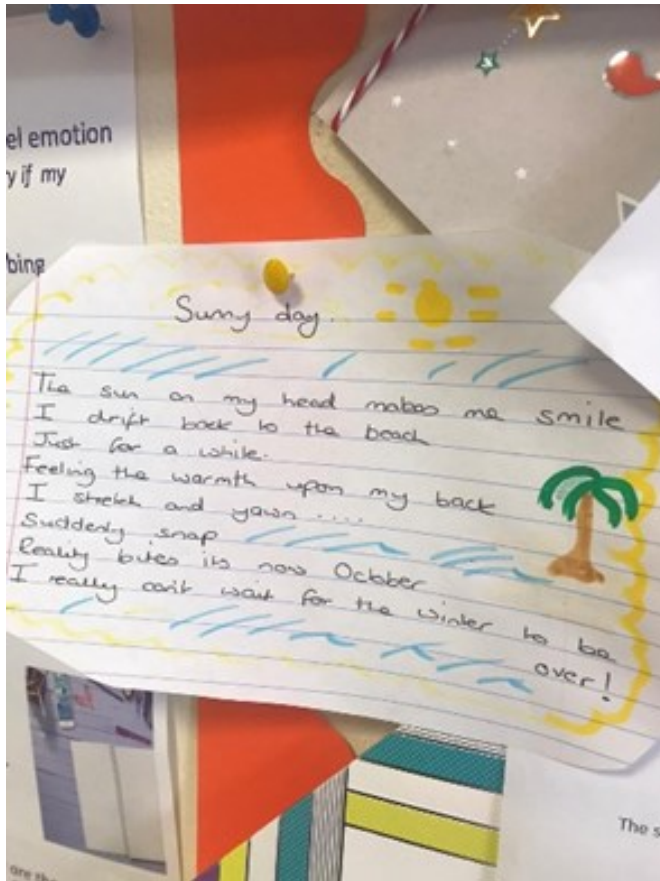 el emotion
y if my
bing
Sunny day.
The sun on my head makes me smile
I drift back to the beach
Just for a while.
Feeling the warmth upon my back
I stretch and yawn ....
Suddenly snap
Reality bites its now October
I really can't wait for the winter to be
over!
The s
are th